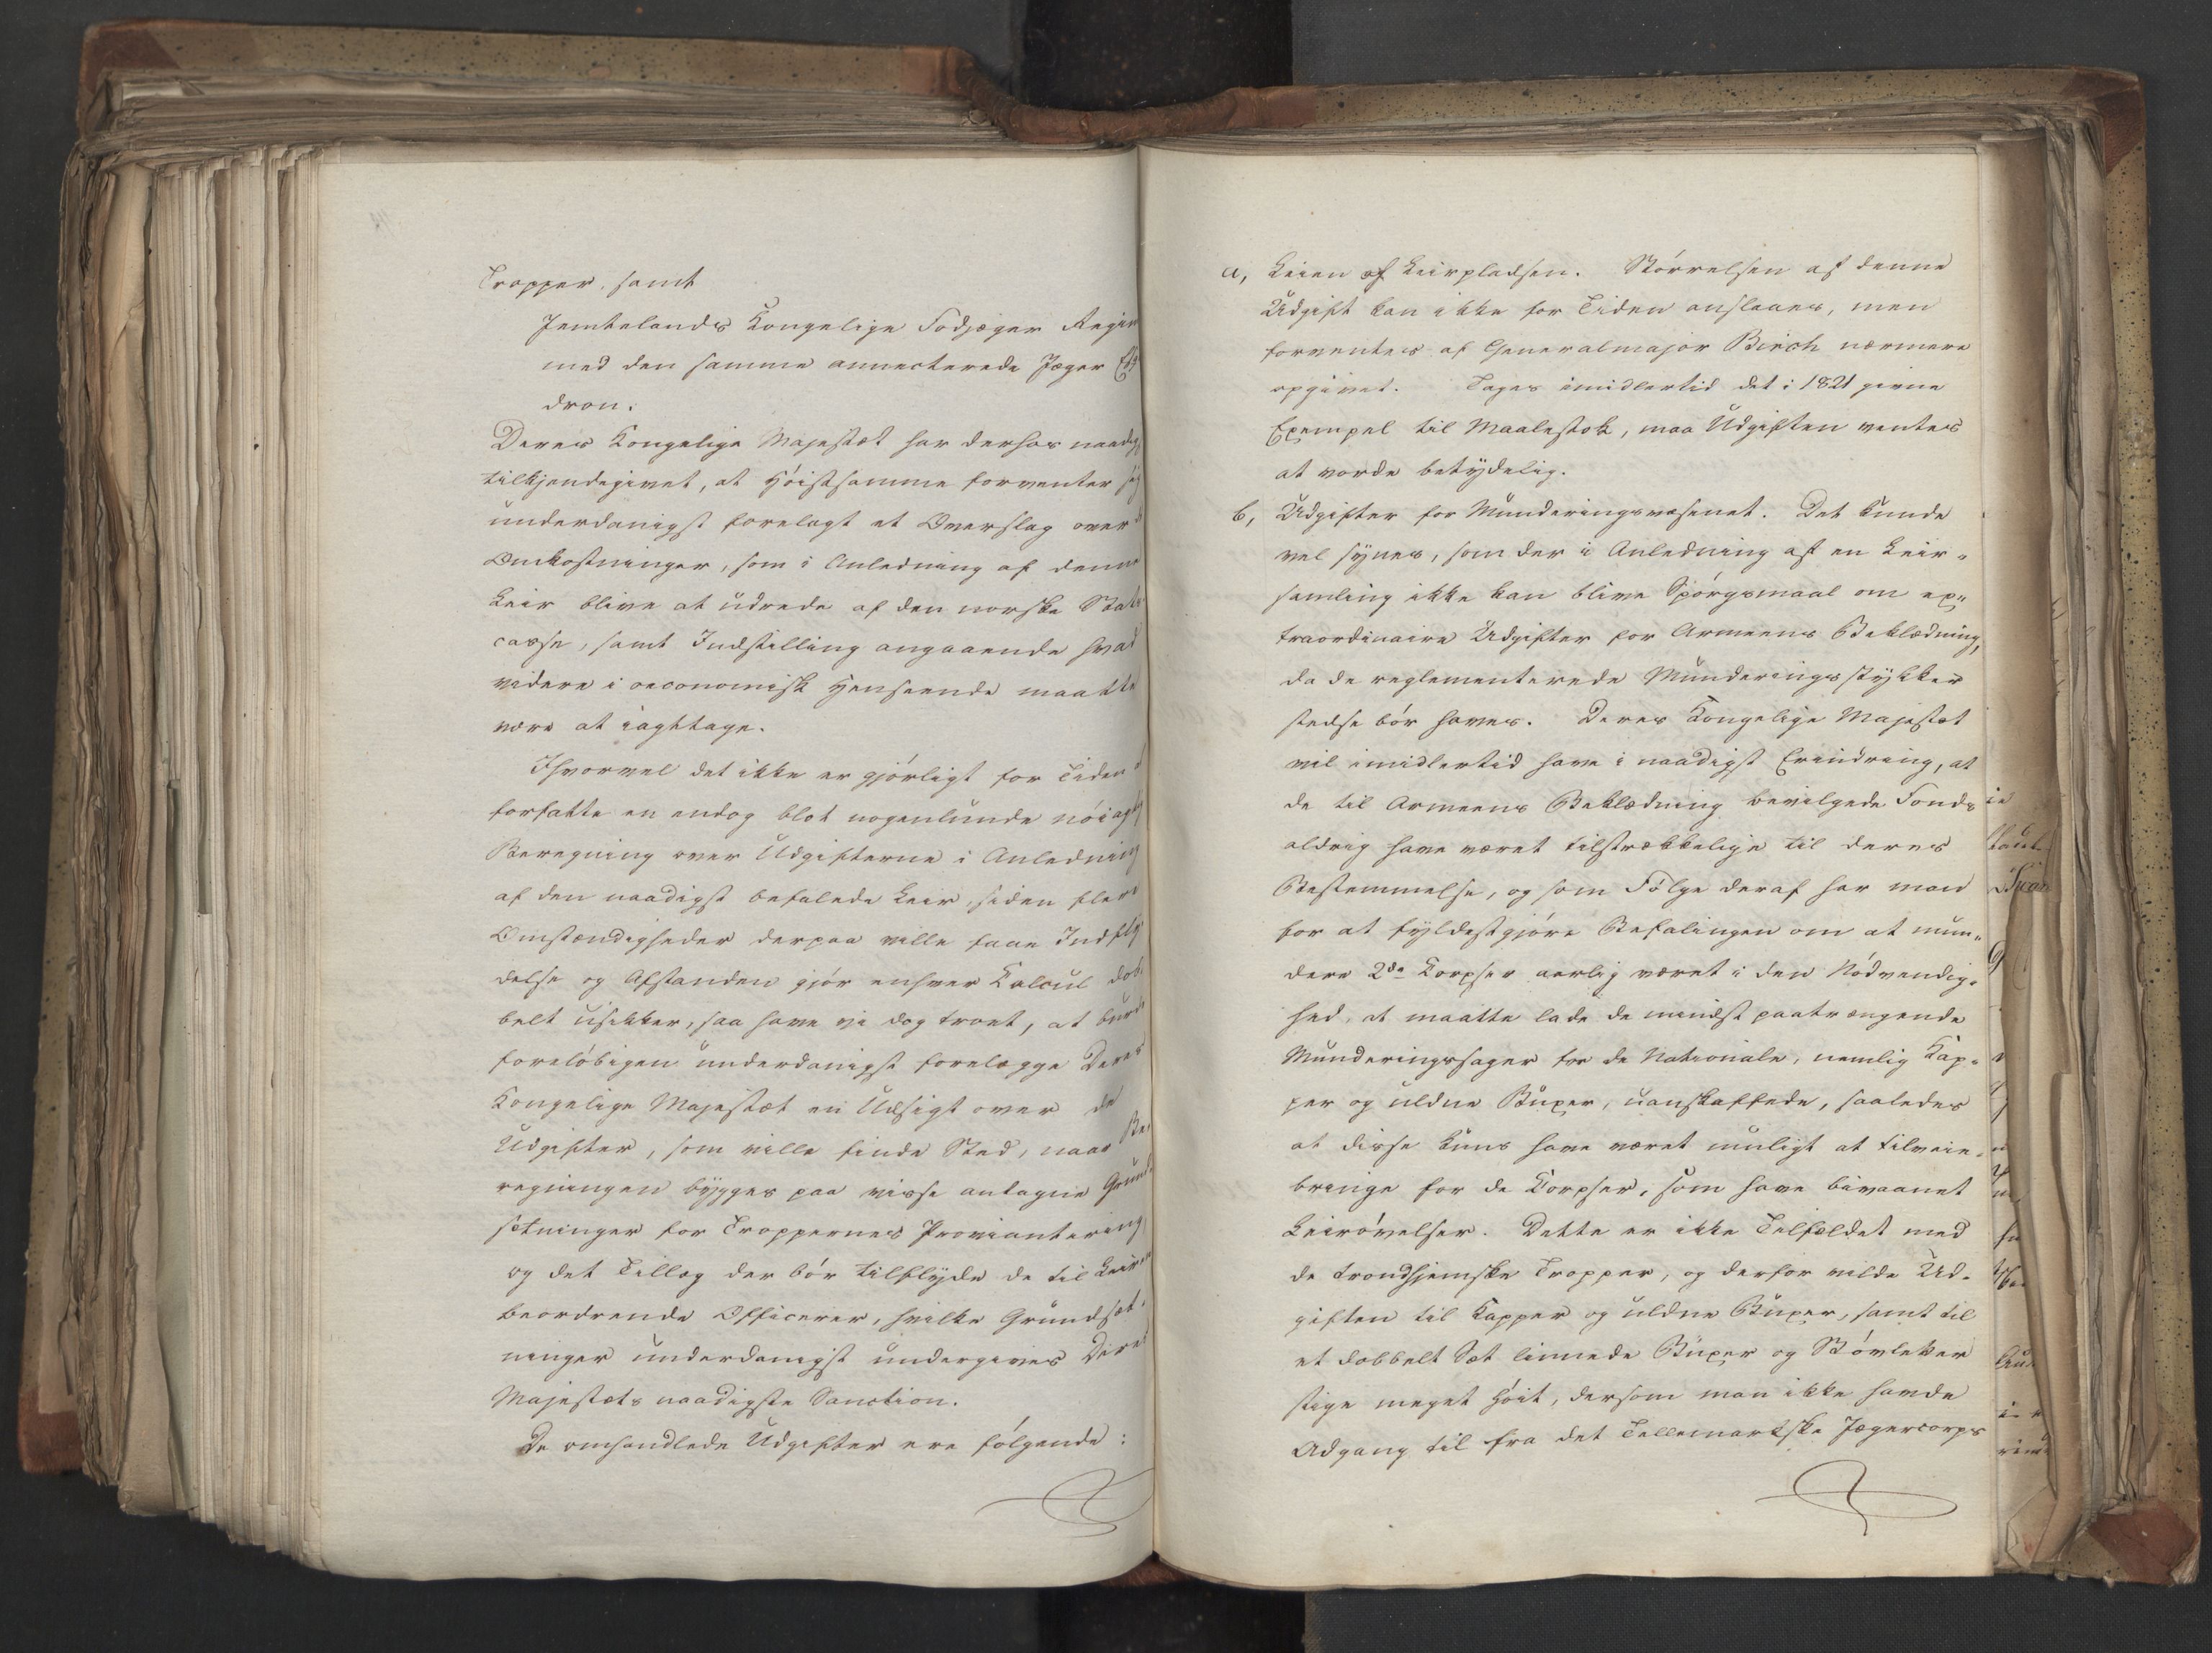 Tropper, samt
Jemtelands Kongelige Fodjæger Regim
med den samme annecterede Jæger Esqva
dron.
Deres Kongelige Majestæt har derhos naadigst
tilkjendegivet, at Høistsamme forventer sig
underdanigst forelagt et Overslag over de
Omkostninger, som i Anledning af denne
Leir blive at udrede af den norske Stats
casse, samt Indstilling angaaende hvad
videre i oeconomisk Henseende maatte
være at iagttage.
Ihvorvel det ikke er gjørligt for Tiden
forfatte en endog blot nogenlunde nøiagtig
Beregning over Udgifterne i Anledning
af den naadigst befalede Leir, siden flere
Omstændigheder derpaa ville faae Indfly
delse og Afstanden gjør enhver Calcul dob
belt usikker, saa have vi dog troet, at burde
foreløbigen underdanigst forelægge Deres
Kongelige Majestæt en Udsigt over de
Udgifter, som ville finde Sted, naar Be
regningen bygges paa visse antagne Grund
sætninger for Troppernes Proviantering
og det Tillæg der bør tilflyde de til Leiren
beordrende Officerer, hvilke Grundsæt
ninger underdanigst undergives Deres
Majestæts naadigste Sanction.
De omhandlede Udgifter ere følgende:
a, Leien af Leirpladsen. Størrelsen af denne
Udgift kan ikke for Tiden anslaaes, men
forventes af Generalmajor Birch nærmere
opgivet. Tages imidlertid det i 1821 givne
Exempel til Maalestok, maa Udgiften ventes
at vorde betydelig.
b, Udgifter for Munderingsvæsenet. Det kunde
vel synes, som der i Anledning af en Leir-
samling ikke kan blive Spørgsmaal om ex-
traordinaire Udgifter for Armeens Beklædning,
da de reglementerede Munderingsstykker
stedse bør haves. Deres Kongelige Majestæt
vil imidlertid have i naadigst Erindring, at
de til Armeens Beklædning bevilgede Fonds
aldrig have været tilstrækkelige til deres
Bestemmelse, og som Følge deraf har man
for at fyldestgjøre Befalingen om at mun-
dere 2de Corpser aarlig været i den Nødvendig-
hed, at maatte lade de mindst paatrængende
Munderingssager for de Nationale, nemlig Kap-
per og uldne Buxer, uanskaffede, saaledes
at disse kuns have været muligt at tilveie-
bringe for de Corpser, som have bivaanet
Leirøvelser. Dette er ikke Tilfældet med
de trondhjemske Tropper, og derfor vilde Ud-
giften til Kapper og uldne Buxer, samt til
et dobbelt Sæt linnede Buxer og Støvletter
stige meget høit, dersom man ikke havde
Adgang til fra det Tellemarkske Jægercorps